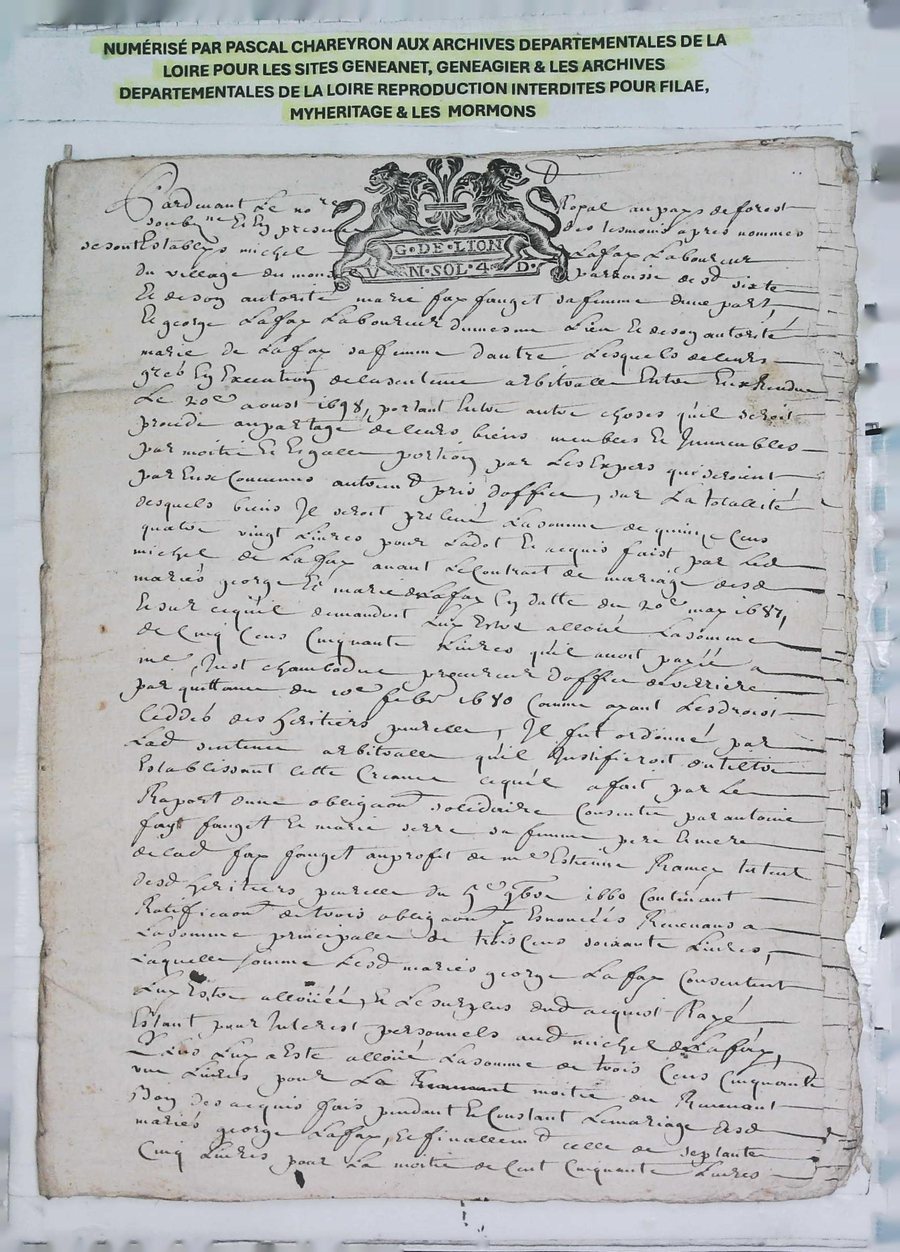 NUMÉRISÉ PAR PASCAL CHAREYRON AUX ARCHIVES DEPARTEMENTALES DE LA
LOIRE POUR LES SITES GENEANET, GENEAGIER & LES ARCHIVES
DEPARTEMENTALES DE LA LOIRE REPRODUCTION INTERDITES POUR FILAE,
MYHERITAGE & LES MORMONS
G·DE·LION
V N·SOL·4·D·
Pardevant Le no.re Royal au pays de forest
soubz.ne Et En presence des tesmoins apres nommes
se sont Establys michel Lafax Laboureur
du village du parroisse de s.t sixte
Et de son autorité marie fax fauget sa femme dune part,
Et george Lafax Laboureur dumesme Lieu Et deson autorité
marie de Lafax sa femme dautre Lesquels deleurs
grés En Execution delasentence arbitralle Entre Eux Rendue
Le 20.e aoust 1698, portant Entre autre choses quil seroit
procedé aupartage de leurs biens meubles Et Immeubles
par moitié Et Esgalle portion par Les Expers qui seroient
par Eux Convenus autrem.t pris doffice, sur La totallité
desquels biens Il seroit preleué Lasomme de quinze Cens
quatre vingt Liures pour Ladot Et acquis faist par Led
michel de Laffax auant LeContract de mariage desd
mariés george Et marie de Lafax En datte du 20.e may 1687,
Et sur cequil demandoit Luy Estre alloüé Lasomme
de Cinq Cens Cinquante Liures quil auoit payée a
m.e Just chambodue procureur doffice deverriere
par quittance du 10.e feb.r 1680 Comme ayant Lesdroist
Ceddés des heritiers punelle, Il fut ordonné par
Lad sentence arbitralle quil Justifieroit dutiltre
Establissant Cette Creance cequil afait par Le
Raport dune obligaon solidaire Consentie par antoine
fayt fauget Et marie serre sa femme pere Et mere
delad fax fauget auproffit de m.e Estienne Ramey tuteur
desd heritiers punelle du 5.e 9bre 1660 Contenant
Ratificaon de trois obligaon y Esnoncées Reuenans a
Lasomme principalle de troisCens soixante Liures,
Laquelle somme Lesd mariés george Lafax Consentent
Luy Estre alloüée, Et Lesurplus dud acquist Rayé
Estant pour Interest personnels aud michel de Lafax,
Plus Luy aEsté alloüé Lasomme de trois Cens Cinquante
une Liures pour La moitié du Reuenant
Bon des acquis fais pendant Et Constant Lemariage desd
mariés george Lafax, Et finallem.t celle de septante
Cinq Liures pour La moitié de Cent Cinquante Liures